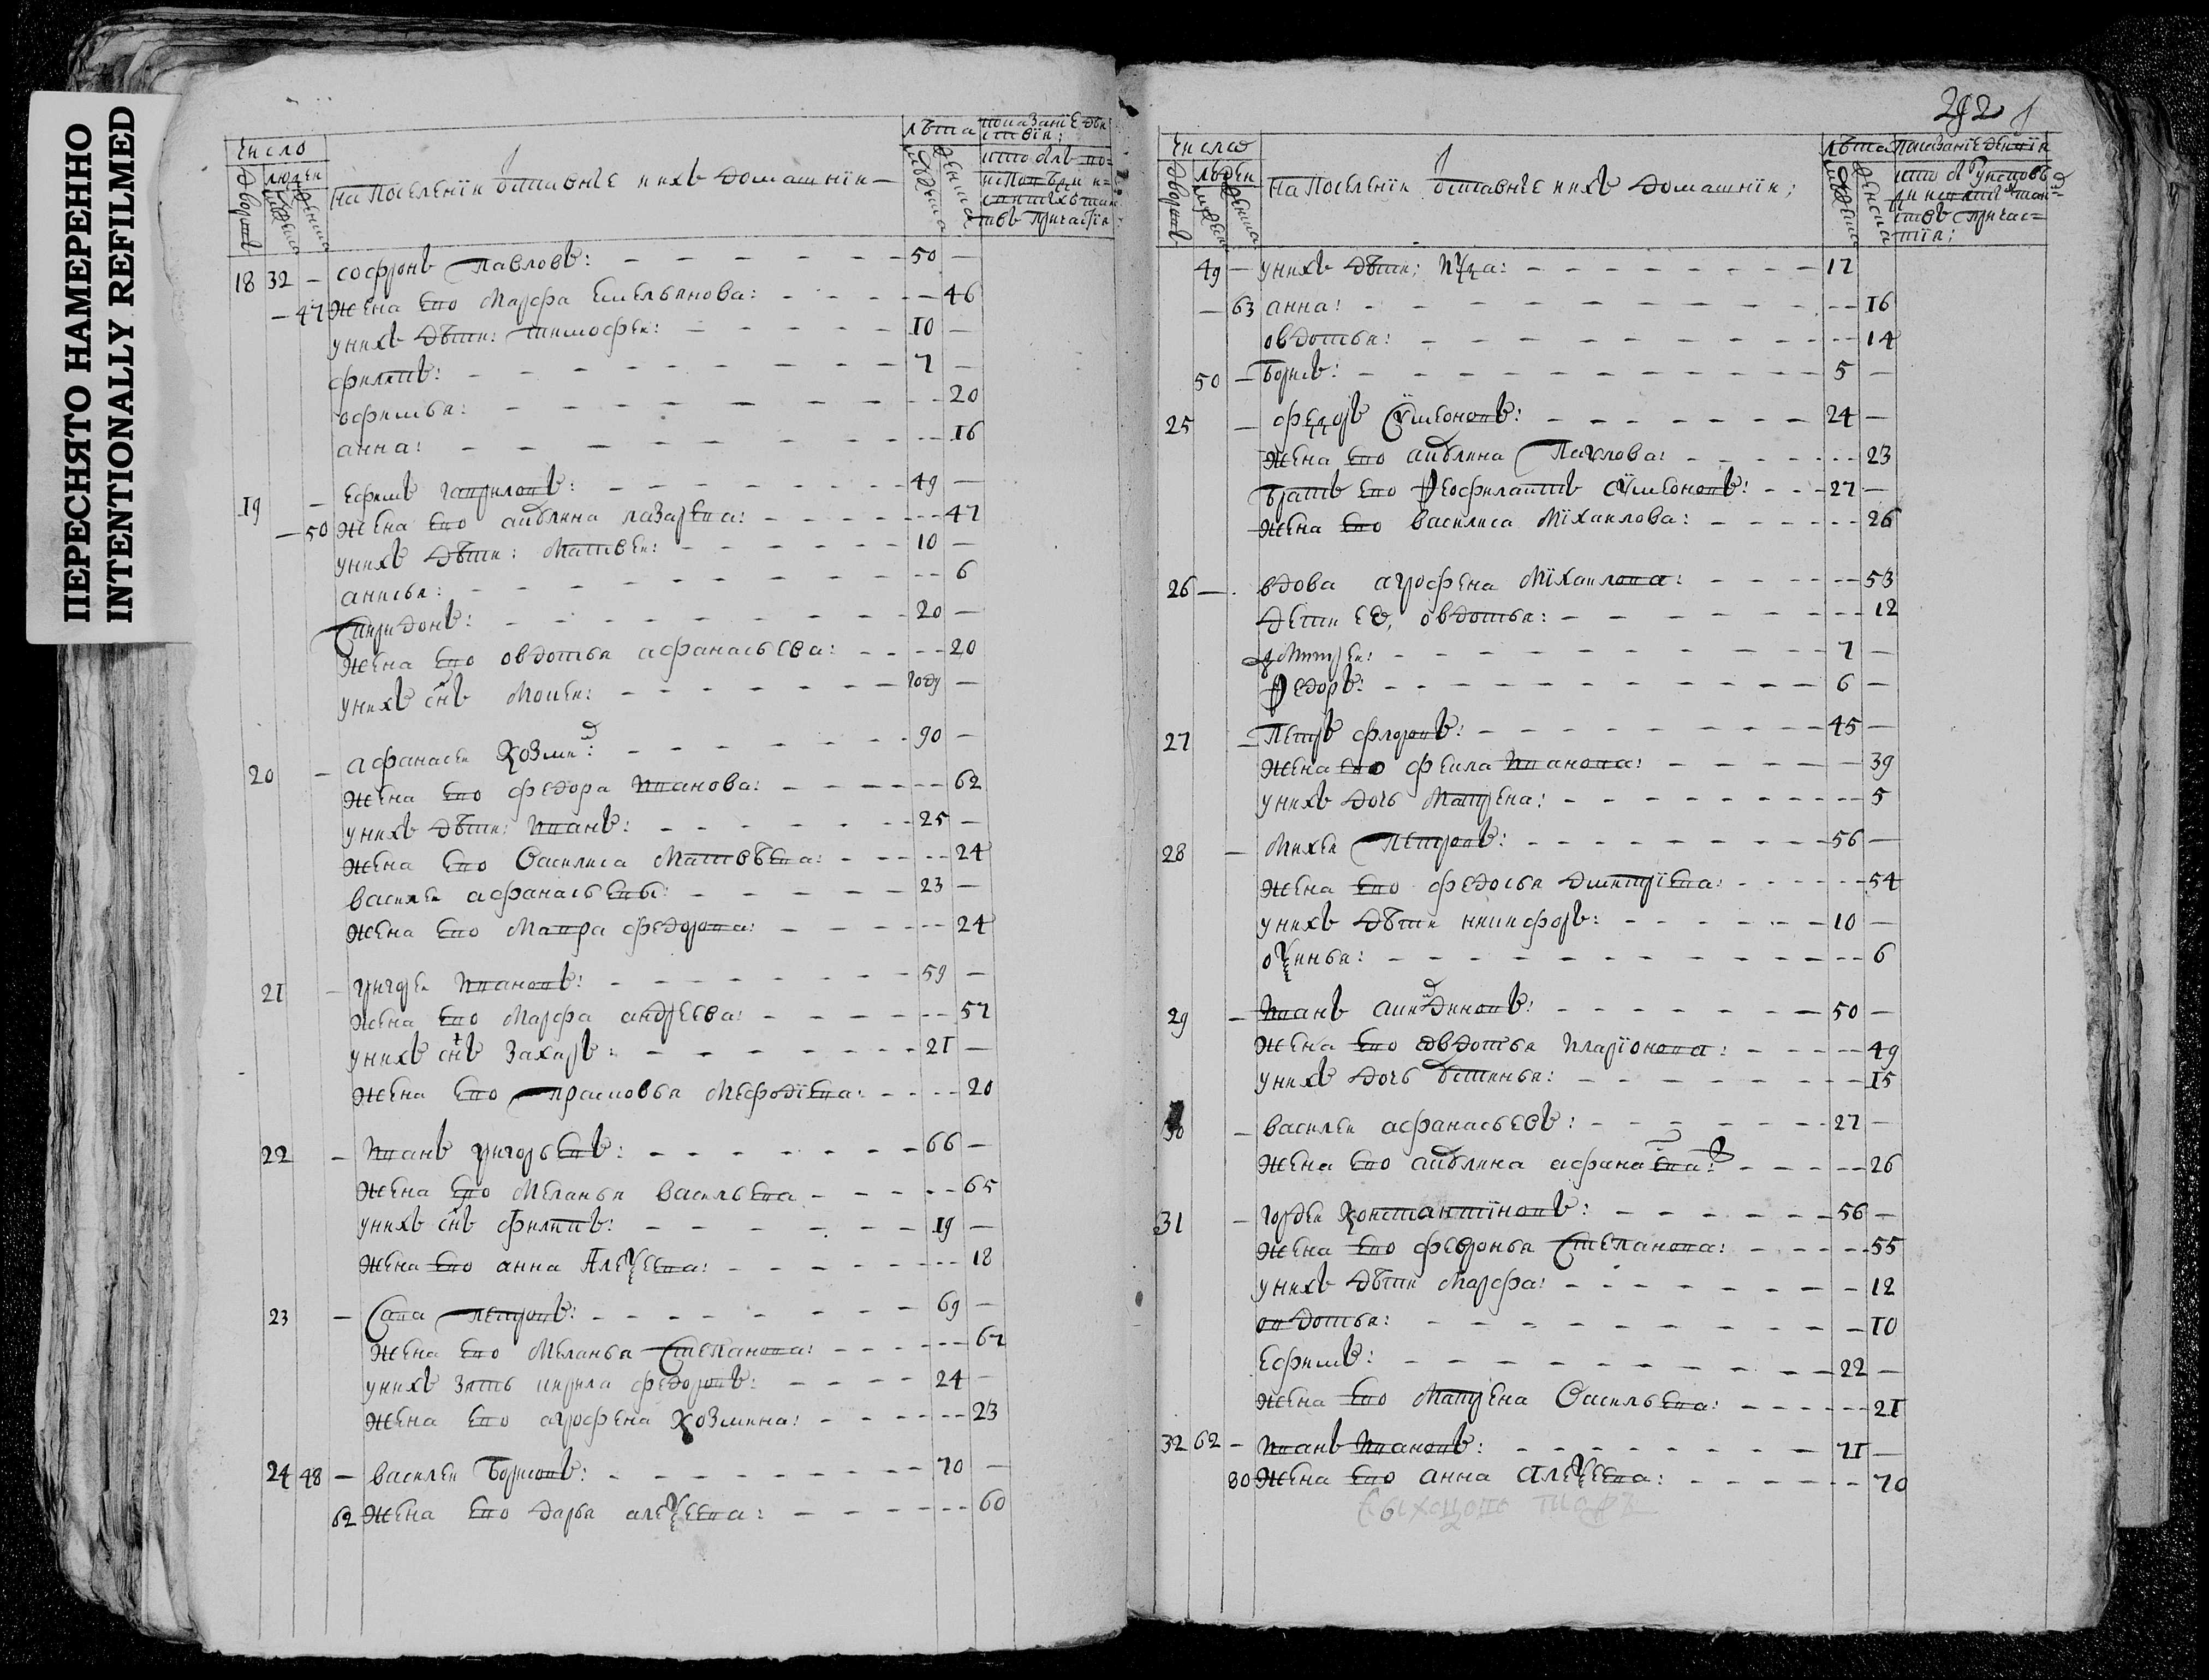 ПЕРЕСНЯТО НАМЕРЕННО
INTENTIONALLY REFILMED
число
людей
дворовъ
мужеска
женска
На поселении отставные ихъ домашнии
лѣта
мужеска
женска
18 32 — софронъ павловъ: 50 —
— 47 жена ево марфа емельянова: — 46
у нихъ дѣти: тимофеи: 10 —
филипъ: 7 —
офимья: — 20
анна: — 16
19 — ефимъ гавриловъ: 49 —
— 50 жена ево акулина лазарева: — 47
у нихъ дѣти: матвеи: 10 —
анисья: — 6
спиридонъ: 20 —
жена ево овдотья афанасьева: — 20
у нихъ снъ мокеи: году —
20 — афанасеи козмин: 90 —
жена ево федора иванова: — 62
у нихъ дѣти: иванъ: 25 —
жена ево василиса матвѣева: — 24
василеи афанасьевъ: 23 —
жена ево мавра федорова: — 24
21 — григореи ивановъ: 59 —
жена ево марфа андреева: — 57
у нихъ снъ захаръ: 21 —
жена ево прасковья мефодіева: — 20
22 — иванъ григорьевъ: 66 —
жена ево меланья васильева — 65
у нихъ снъ филипъ: 19 —
жена ево анна алеѯеева: — 18
23 — сава петровъ: 69 —
жена ево меланья степанова: — 67
у нихъ зять кирила федоровъ: 24 —
жена ево агрофена козмина: — 23
24 48 — василеи борисовъ: 70 —
62 жена ево дарья алеѯеева: — 60
292
число
людей
дворовъ
На поселении отставные и ихъ домашнии;
лѣта
49 — у нихъ дѣти: кузма: 17
— 63 анна: — 16
овдотья: — 14
50 — борисъ: 5 —
25 — федоръ сѵмеоновъ: 24 —
жена ево акулина павлова: — 23
братъ ево ѳеофилактъ сѵмеоновъ: 27 —
жена ево василиса міхаилова: — 26
26 — вдова агрофена міхаилова: — 53
дети ея, овдотья: — 12
дмитреи: 7 —
ѳедоръ: 6 —
27 — петръ флоровъ: 45 —
жена ево фекла иванова: — 39
у нихъ дочь матрена: — 5
28 — михеи петровъ: 56 —
жена ево федосья дмитріева: — 54
у нихъ дѣти никифоръ: 10 —
оѯинья: — 6
29 — иванъ аикдиновъ: 50 —
жена ево овдотья иларіонова: — 49
у нихъ дочь устинья: — 15
30 — василеи афанасьевъ: 27 —
жена ево акулина афанасева: — 26
31 — гордеи константіновъ: 56 —
жена ево февронья степанова: — 55
у нихъ дѣти марфа: — 12
овдотья: — 10
ефимъ: 22 —
жена ево матрена васильева: — 21
32 62 — иванъ ивановъ: 71 —
80 жена ево анна алеѯеева: — 70